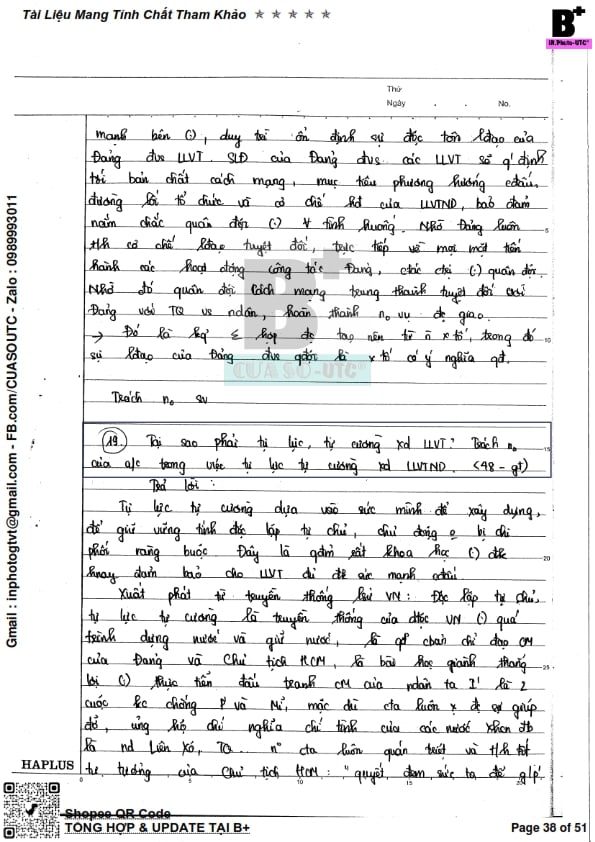 Tài Liệu Mang Tính Chất Tham Khảo ★ ★ ★ ★ ★
B+
IN.Photo-UTC
Thứ
Ngày No.
mạnh bên (:), duy trì ổn định sự độc tôn lđạo của
Đảng đvs LLVT. SLĐ của Đảng đvs các LLVT sẽ q' định
tới bản chất cách mạng, mục tiêu phương hướng cđấu,
đường lối tổ chức và cơ chế hđ của LLVTND, bảo đảm
nắm chắc quân đội (:) ∀ tình huống. Nhờ Đảng luôn 5
t/h cơ chế lđạo tuyệt đối, trực tiếp về mọi mặt tiến
hành các hoạt động công tác Đảng, ctác ctrị (:) quân đội.
Nhờ đó quân đội cách mạng trung thành tuyệt đối với
Đảng với TQ vs ndân, hoàn thành nhiệm vụ đc giao.
→ Đó là kq' hợp đc tạo nên từ n x tố, trong đó 10
sự lđạo của Đảng đvs qđội là x tố có ý nghĩa qđ.
B+
CUA SO-UTC
Trách no sv
19. Tại sao phải tự lực, tự cường xd LLVT? Trách no 15
của a/c trong việc tự lực tự cường xd LLVTND. (48 - gt)
Trả lời:
Tự lực tự cường dựa vào sức mình để xây dựng,
để giữ vững tính độc lập tự chủ, chủ động o bị chi
phối ràng buộc. Đây là qđiểm rất khoa học (:) đk 20
hnay đảm bảo cho LLVT đủ để sức mạnh cđấu.
Xuất phát từ truyền thống lsử VN: Độc lập tự chủ,
tự lực tự cường là truyền thống của dtộc VN (:) quá
trình dựng nước và giữ nước, là qđ cbản chỉ đạo CM
của Đảng và Chủ tịch HCM, là bài học giành thắng 25
lợi (:) thực tiễn đấu tranh CM của ndân ta I' là 2
cuộc kc chống P và Mĩ, mặc dù cta luôn x đc sự giúp
đỡ, ủng hộ chí nghĩa chí tình của các nước XHCN đb
là nd Liên Xô, TQ n° cta luôn quán triệt và t/h tốt
tư tưởng của Chủ tịch HCM: "quyết đem sức ta để g/p'
HAPLUS 0 5 10 15 20
Gmail : inphotogtvt@gmail.com - FB.com/CUASOUTC - Zalo : 0989993011
Shopee QR Code
TỔNG HỢP & UPDATE TẠI B+
Page 38 of 51